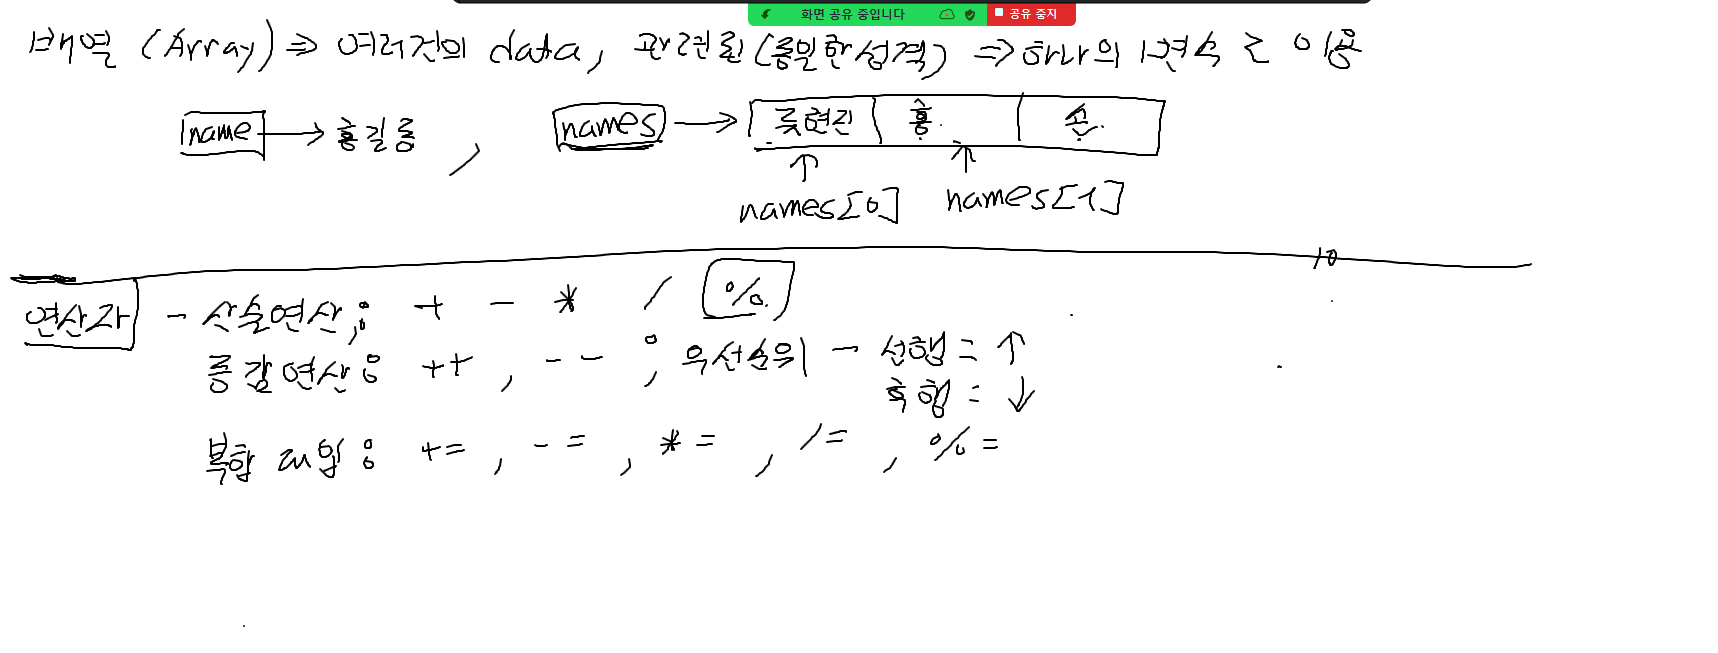 화면 공유 중입니다 공유 중지
배열 (Array) ⇒ 여러건의 data, 관련된 (동일한성격) ⇒ 하나의 변수로 이용
name → 홍길동 , names → 류현진 홍. 손.
↑ ↑
names[0] names[1]
10
연산자 - 산술연산; : + - * / %
증감연산 : ++ , -- ; 우선순위 - 선행 = ↑
후행 = ↓
복합대입 : += , -= , *= , /= , %=